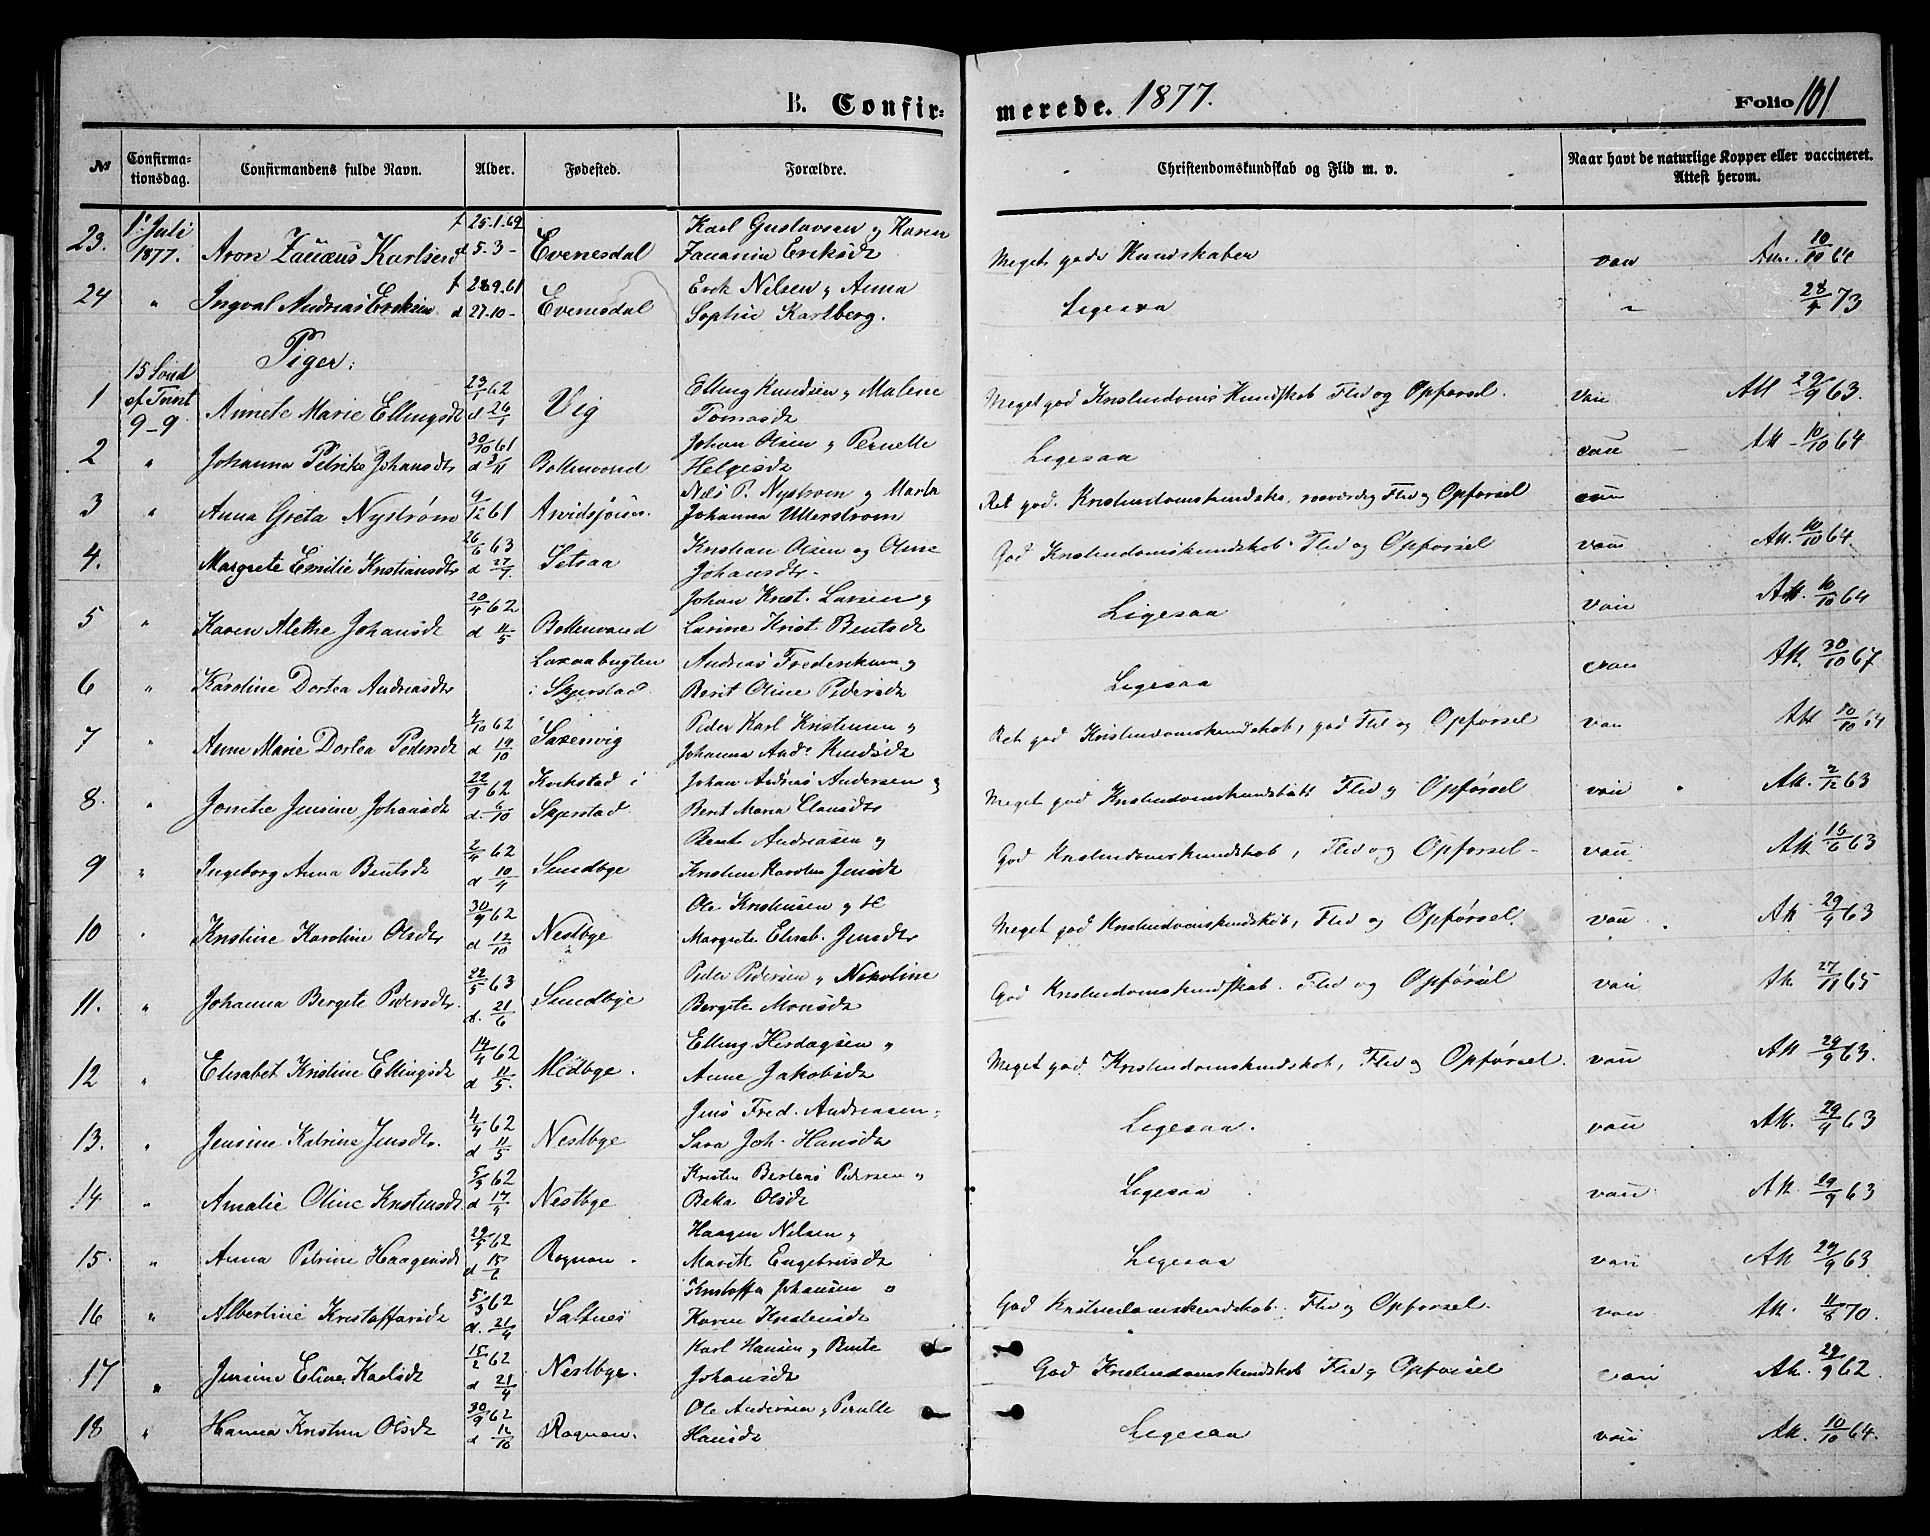 B. Confirmerede. 1877.
Folio 101
No
Confirmationsdag.
Confirmandens fulde Navn.
Alder.
Fødested.
Forældre.
Christendomskundskab og Flid m. v.
Naar havt de naturlige Kopper eller vaccineret. Attest herom.
23. 1' Juli 1877. Aron Karlsen f 25.1.62 d 5.3- Evenesdal Karl Gustavsen og Karen Eriksdt Meget gode Kundskaber van 10/10 64
24 " Ingval Andreas Eriksen f 28.9.61 d 27.10- Evenesdal Erik Nelsen " Anna Sophie Karlberg. Ligesaa " 73
Piger:
1 15 Sond ef Trint 9-9 Annete Marie Ellingsdt 23/1 62 d 26/1 Vig Elling Knudsen " Malene Tomasdt Meget god Kristendoms Kundskab Flid og Opførsel. van Att 29/9 63.
2 " Johanna Petrike Johansdtr 30/10 61 d 3/11 Bottenvand Johan Olsen " Pernelle Helgesdt Ligesaa van Att 10/10 64
3 " Anna Greta Nystrøm 9/12 61 Arvidsjour. Nels P. Nystrøm og Marta Johanna Utterstrøm Ret god. Kristendomskundska, Flid og Opførsel
4. " Margrete Emilie Kristiansdtr 26/6 63 d 27/7. Setsaa Kristian Olsen og Oline Johansdtr. God Kristendomskundskab. Flid og Opførsel van Att. 10/10 64.
5 " Karen Alethe Johansdt 20/4 62 d 11/5 Bottenvand Johan Krist. Larsen " Larine Krist. Bentsdt Ligesaa van Att. 10/10 64
6 " Karoline Dortea Andreasdtr Laxaabugten i Skjerstad. Andreas Frederiksen " Berit Oline Pedersdt Ligesaa van Att. 30/10 67
7 " Anne Marie Dortea Pedersdt 4/10 62 d 19/10 Saxenvig Peder Karl Kristensen " Johanna And. Knudsdt Ret god Kristendomskundskab, god Flid og Opførsel van Att 10/10 64
8. " Jonette Jensine Johansdt 22/9 62 d. 6/10 Kvikstad i Skjerstad. Johan Andreas Andersen " Berit Maria Clausdtr Meget god Kristendomskundskab Flid og Opførsel van Att. 2/12 63
9 " Ingeborg Anna Bentsdt 2/4 62 d 10/4 Sundbye Bent Andreasen " Kristine Karoline Jensdt God Kristendomskundskab, Flid og Opførsel - van Att 16/6 63
10 " Kristine Karoline Olsdtr 30/9 62 d 12/10 Nestbye Ole Kristensen " Margrete Elisab. Jensdtr Meget god Kristendomskundskab, Flid og Opførsel. van Att 29/9 63
11. " Johanna Bergete Pedersdtr. 22/5 63 d. 21/6 Sundbye Peder Pedersen " Nekoline Bergete Monsdt God Kristendomskundskab. Flid og Opførsel van Att. 27/11 65
12 " Elisabet Kristine Ellingsdt 14/4 62 d 11/5. Medbye. Elling Herdagsen " Anne Jakobsdt Meget god Kristendomskundskab, Flid og Opførsel. van Att 29/9 63.
13. " Jensine Katrine Jensdtr. 4/4 62 d 11/5 Nestbye Jens Fred. Andreasen " Sara Joh. Hansdt Ligesaa. van Att. 29/9 63
14 " Amalie Oline Kristensdt 5/3 62 d 17/4 Nestbye Kristen Berteas Pedersen " Beka Olsdt Ligesaa van Att. 29/9 63
15. " Anna Petrine Haagensdt 29/5 62 d 15/6 Rognan. Haagen Nelsen " Marith Engebretsdt Ligesaa van Att 29/9 63
16 " Albertine Kristoffersdt 5/3 62 d. 21/4 Saltnes Kristoffer Johansen " Karen Kristensdt God Kristendomskundskab. Flid og Opførsel. van Att. 11/8 70.
17 " Jensine Eline Karlsdt 15/2 62 d 21/4 Nestbye. Karl Hansen " Bente Johansdt God Kristendomskundskab Flid og Opførsel van Att. 29/9 62.
18 " Hanna Kristine Olsdt 30/9 62 d 12/10 Rognan. Ole Andersen " Pernelle Hansdt Ligesaa van Att. 10/10 64.